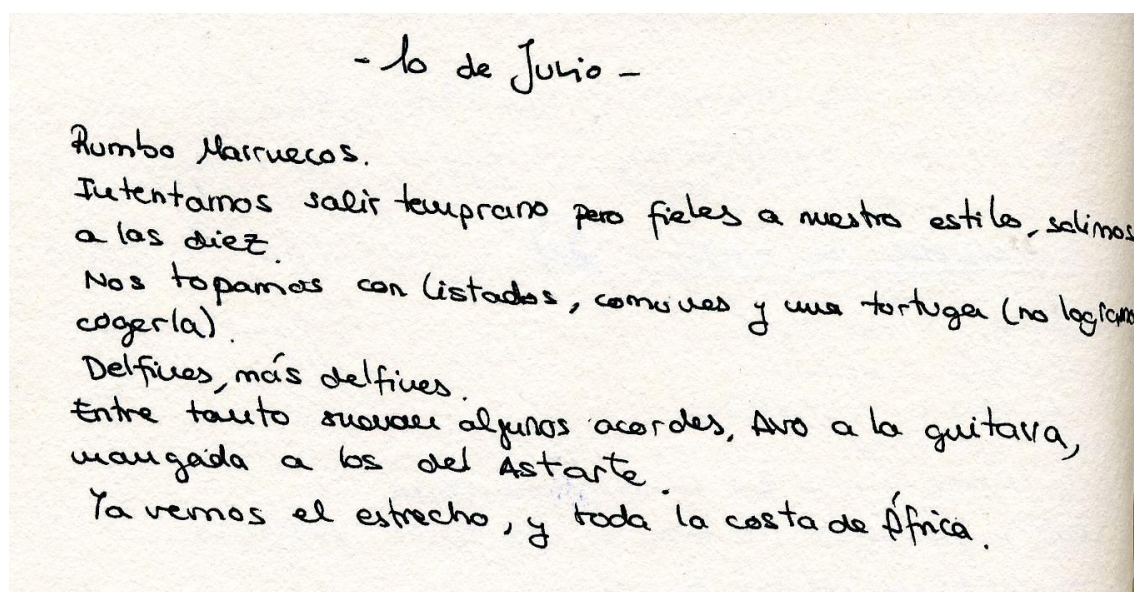 - 10 de Julio -
Rumbo Marruecos.
Intentamos salir temprano pero fieles a nuestro estilo, salimos
a las diez.
Nos topamos con listados, comunes y una tortuga (no logramos
cogerla).
Delfines, más delfines.
Entre tanto suenan algunos acordes, Avo a la guitarra,
mangada a los del Astarte.
Ya vemos el estrecho, y toda la costa de África.